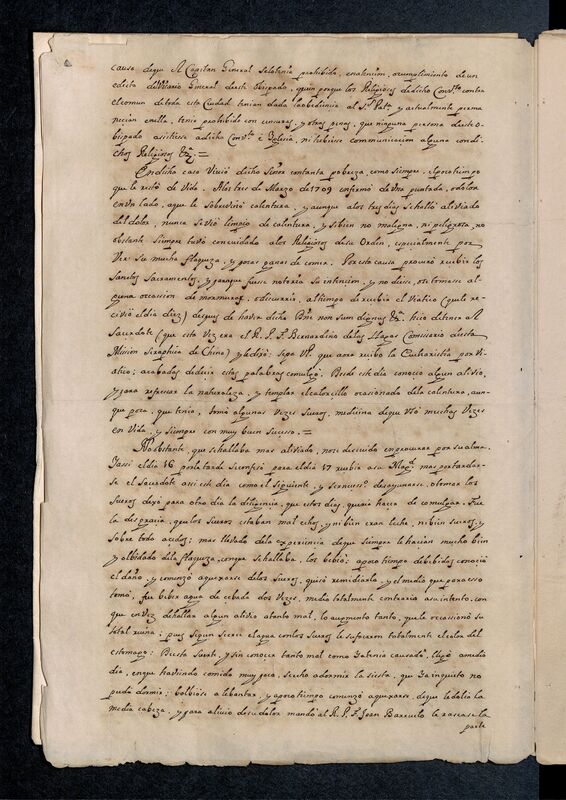 causa de que Al Capitan General selotenia prohibido, enatencion, ocumplimiento de un
edicto delVicario General deeste Obispado, quien porque los Religiosos dedicho Conv.to contra
elcomun detoda esta Ciudad tenian dada laobediencia al S.r Pat.a, y actualmente perma
necian enella, tenia prohibido con censuras, y otras penas, que ninguna persona deeste o-
bispado asistiesse adicho Conv.to è Iglesia, ni tubiesse communicacion alguna con di-
chos Religiosos &.a =
En dicha casa Vivió dicho Señor contanta pobreza, como siempre, elpoco tiempo
que le restó de Vida. Alos tres de Marzo de 1709 enfermó de Vna puntada, odolor
en Vn lado, aque le sobrevinó calentura, y aunque alos tres dias sehalló aliviado
del dolor, nunca se vió limpio de calentura, y si bien no maligna, ni peligrosa, no
obstante siempre tuvó concuidado alos Religiosos desu Orden, especialmente por
Ver su mucha flaqueza, y pocas ganas de comer. Poresta causa procuró recibir los
Sanctos Sacramentos, y paraque fuesse notoria su intencion, y no diesse, ó tomasse al-
guna occasion de mormurar, ó discurrir, altiempo de recibir el Viatico (que le re-
civió eldia diez) despues de haver dicho Dñe non sum dignus &.a hizo detener Al
Sacerdote (que esta Vez era el R. P. F. Bernardino delas Llagas Comissario deesta
Mission Seraphica de China) y le dixó: sepa VR. que aora recibo la Eucharistia por Vi-
atico; acabadas dedecir estas palabras comulgó. Desde este dia conoció algun alivio,
y para refrescar la naturaleza, y templar elcalorcillo ocasionado dela calentura, aun-
que poca, que tenia, tomó algunas Vezes sueros, medicina de que Vsó muchas Vezes
en Vida, y siempre con muy buen sucesso. =
No obstante, que sehallaba mas aliviado, nose descuidó enprocurar por su alma.
Y assi eldia 16 porla tarde seconfesó para eldia 17 recibir asu Mag.d mas portardar-
se el Sacerdote assi este dia como el siguiente, y ser necess.o desayunarse, otomar los
sueros dexó para otro dia la diligencia, que estos dias queria hacer de comulgar. Fue
la desgracia, que los sueros estaban mal echos, y ni bien eran leche, ni bien sueros, y
sobre todo acidos; mas llevado dela experiencia deque siempre le havian mucho bien
y olbidado dela flaqueza, conque sehallaba, los bebió: apoco tiempo debebidos conoció
el daño, y comenzó aquexarse delos sueros, quisó remediarlo, y elmedio que paraesso
tomó, fue beber agua de cebada dos Vezes, medio totalmente contrario asu intento, con
que en Vez dehallar algun alivio atanto mal, lo augmentó tanto, que le occasionó su
total ruina: pues segun se cree elagua conlos sueros le sufocaron totalmente elcalor del
estomago: Deesta suerte, y sin conocer tanto mal como ya tenia causado, llegó amedio
dia, enque haviendo comido muy poco, seechó adormir la siesta, que ya inquieto no
pudo dormir: bolbiose alebantar, y apoco tiempo comenzó aquexarse, deque le dolia la
media cabeza, y para alivio desu dolor mandó al R. P. F. Joan Barruelo le rascasse la
parte